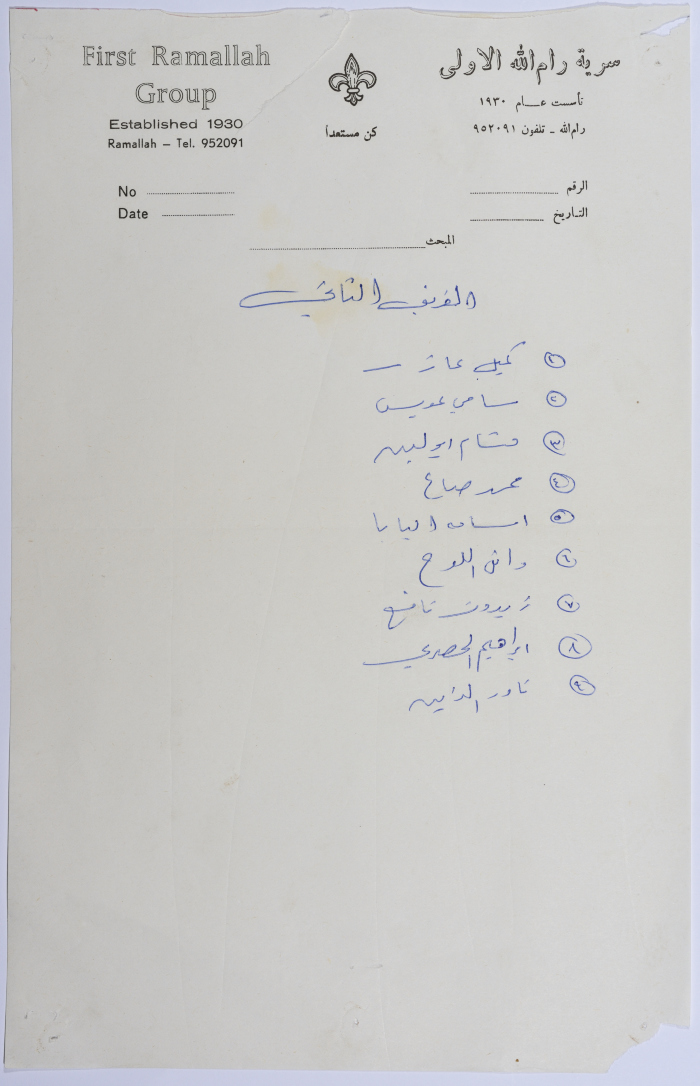 First Ramallah
Group
Established 1930
Ramallah – Tel. 952091
كن مستعداً
سرية رام الله الاولى
تأسست عـام ١٩٣٠
رام الله ـ تلفون ٩٥٢٠٩١
No
Date
الرقم
التاريخ
المبحث
الفريق الثاني
١ كميل عازر
٢ سامي عويس
٣ هشام ابو لبن
٤ محمد صباغ
٥ البابا
٦ وائل اللوح
٧ زيدون نافع
٨ ابراهيم الحصري
٩ نادر